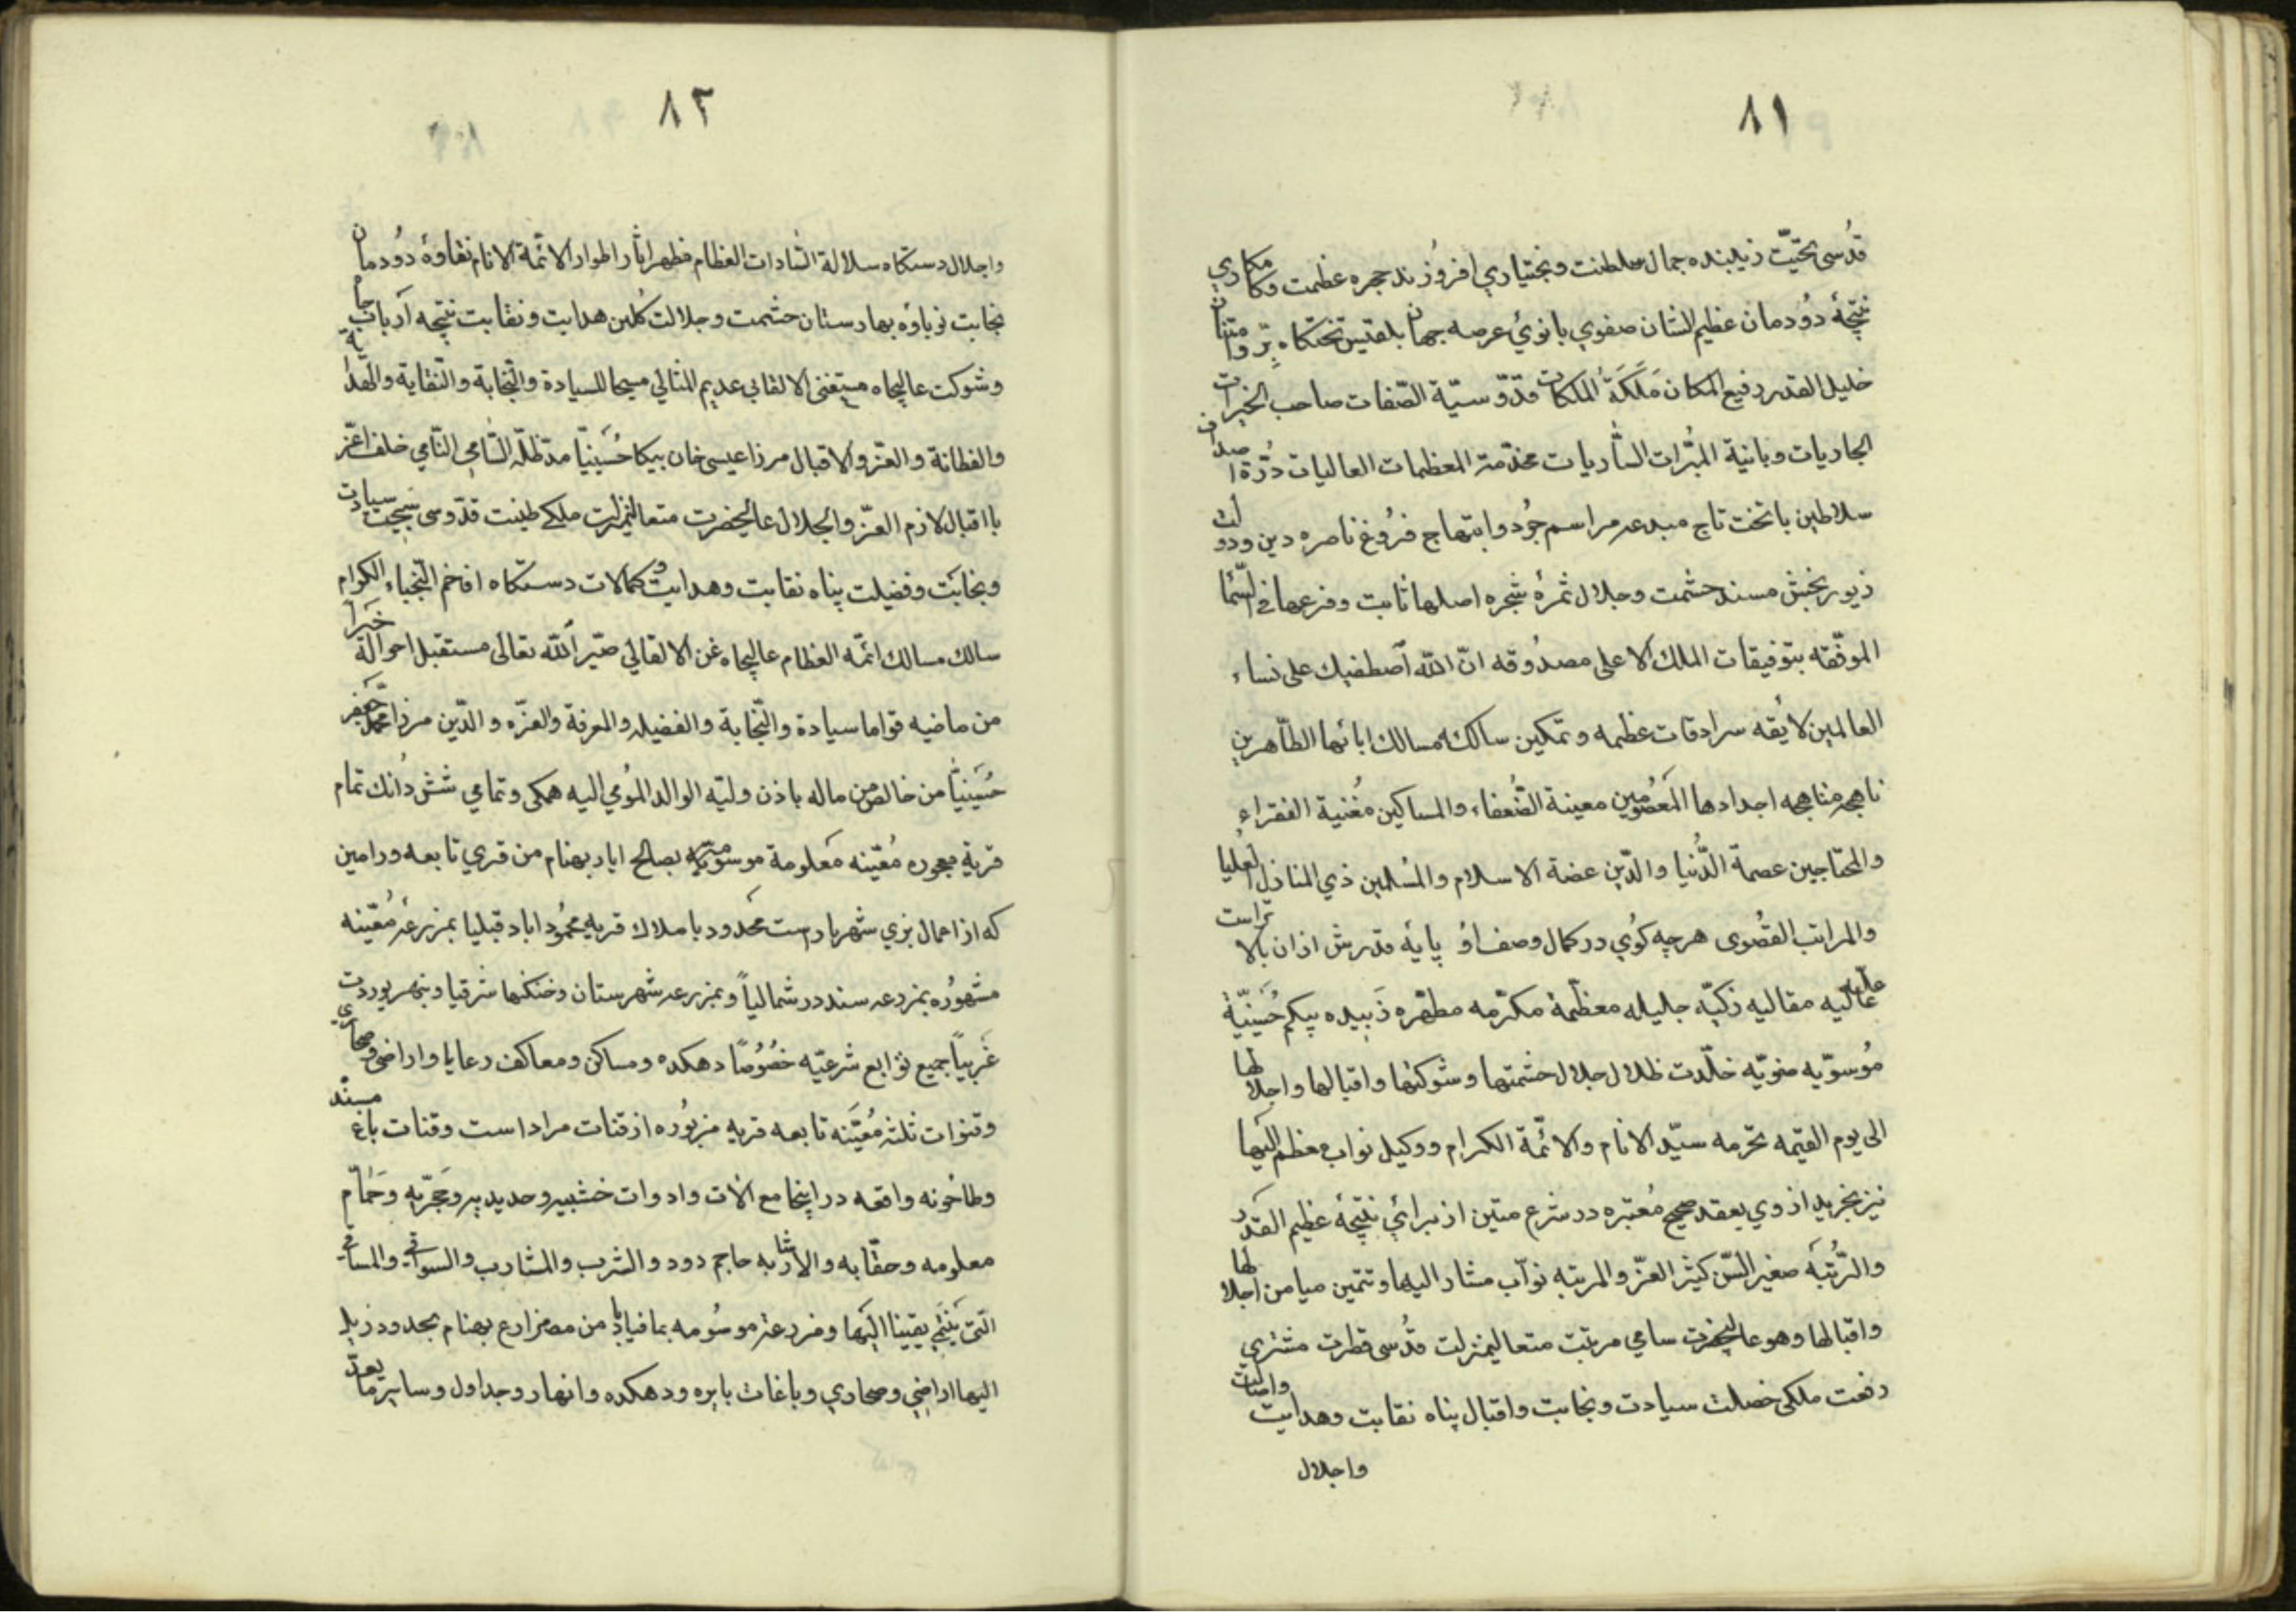 ٨١
قدُسی تحیّت زیبنده جمال سلطنت وبختیاري افروُزند حجره عظمت وکامکاري
نتیجۀ دوُدمان عظیم الشان صفوي بانويُ عرصه جهان بلقیس تختکاه برّ وامتنان
خلیل القدر رفیع المکان مَلَکَةُ الملکات قدّوسیّة الصّفات صاحب الخیرات
الجاریات وبانیة المبُرّات السّٰاریات مخدّمة المعظمات العالیات دُرّة اصداف
سلاطین باتخت تاج مبدعه مراسم جوُد وابتهاج فرُوغ ناصره دین ودولت
زیور بخش مسند حشمت وجلال ثمرۀ شجره اصلها ثابت وفرعها في السّمٰا
الموفّقه بتوفیقات الملك الاعلی مصدُوقه انّ اللّه اصطفیك علی نساء
العالمین لایُقه سرادقات عظیمه وتمکین سالکه مسالك ابائها الطّاهرین
ناهجه مناهجه اجدادها المَعصُومین معینة الضُعفاء والمساکین مُغنیة الفقراء
والمحتاجین عصمة الدُّنیا والدّین عضة الاسلام والمُسلمین ذي المنازل العلیا
والمراتب القصُوی هرچه کوُي در کمال وصف اوُ پایۀ قدرش ازان بالاتر است
علّیه عالیه مقالیه زکیّه جلیله معظّمة مکرّمه مطهّره زَبیده بیکم حُسَینیّة
مُوسوّیه صفویّه خلّدت ظلال جلال حشمتها وشوکتها واقبالها واجلالها
الی یوم القیمه بحّرمه سیّد الانام والائمّة الکرام ووکیل نواب معظم الیها
نیز بخرید از وي بعقد صحیح مُعتبره در شرع متین از برائي نتیجۀ عظیم القدر
والرّتبة صغیر السّن کثیر العزّ والمرتبه نوآب مشار الیها وتتمین میامن اجلالها
واقبالها وهو عالیحضرت سامي مرتبت متعالیمنزلت قدُسی فطرت مشتري
رفعت ملکی خصلت سیادت ونجابت واقبال پناه نقابت وهدایت واصالت
واجلال
٨٢
واجلال دستکاه سلالة السّادات العظام مظهر اثار اطوار الائمّة الانام نقاوۀ دوُدمان
نجابت نوباوُه بهارستان حشمت وجلالت کُلبن هدایت ونقابت نتیجه آرباب جاه
وشوکت عالیجاه مستغنی الالقابي عدیم المثالي مسیحا للسیادة والنّجابة والنّقایة والهّدایة
والفطانة والعزّ والاقبال مرزا عیسی خان بیکا حُسَینیّا مدّ ظلّه السّٰامي النّامي خلف اعزّ
بااقبال لازم العزّ والجلال عالیحضرت متعالیمنزلت ملکے طینت قدّوسی سَجیت سیادت
ونجابَت وفضیلت پناه نقابت وهدایت وکمالات دستکاه افخم النّجباء الکرام
سالك مسالك ائمّه العظام عالیجاه غن الالقابي صیّر اللّه تعالی مستقبل احواله خَیراً
من ماضیه قواما سیادة والنّجابة والفضیله والمعرفة والعزّه والدّین مرزا محمّد جَعفر
حُسَینیّاً من خالص من ماله باذن ولیّه الوالد المُومي الیه همکی وتمامي شش دُانك تمام
قریة معموره مُعیّنه مَعلومة موسوّمه بصالح اباد بهنام من قري تابعه ورامین
که از اعمال بزي شهریار است محَدود باملاك قریه محموُد اباد قبلیا بمزرعۀ مُعّینه
مشهوُره بمزرعه سندر شمالیاً وبمزرعه شهرستان وخنکنها شرقیا وبنهر یوردت
غَربیاً جمیع توٰابع شرعیّه خصُوُصًا دهکده ومساکن ومعاکف رعایا واراضی وصحاري
وقنوات ثلثه مُعیّنه تابعه قریه مزبوُره از قنات مراد است وقنات باغ
وطاخونه واقعه در اینجا مع الات وادوات خشبیه وحدیدیه وحَجرّیه وَحمّام
معلومه وحقّابه والاشاربه حاجم دود والشرب والمشارب والسواقي والمساقي
التی یَنتمي یقینا الیَها ومزرعة موسُومه بمافیاباد من مصزارع بهنام بحدود زیله
الیها اراضِي وصحاري وباغات بایره ودهکده وانهار وجداول وسایر مایعدّ